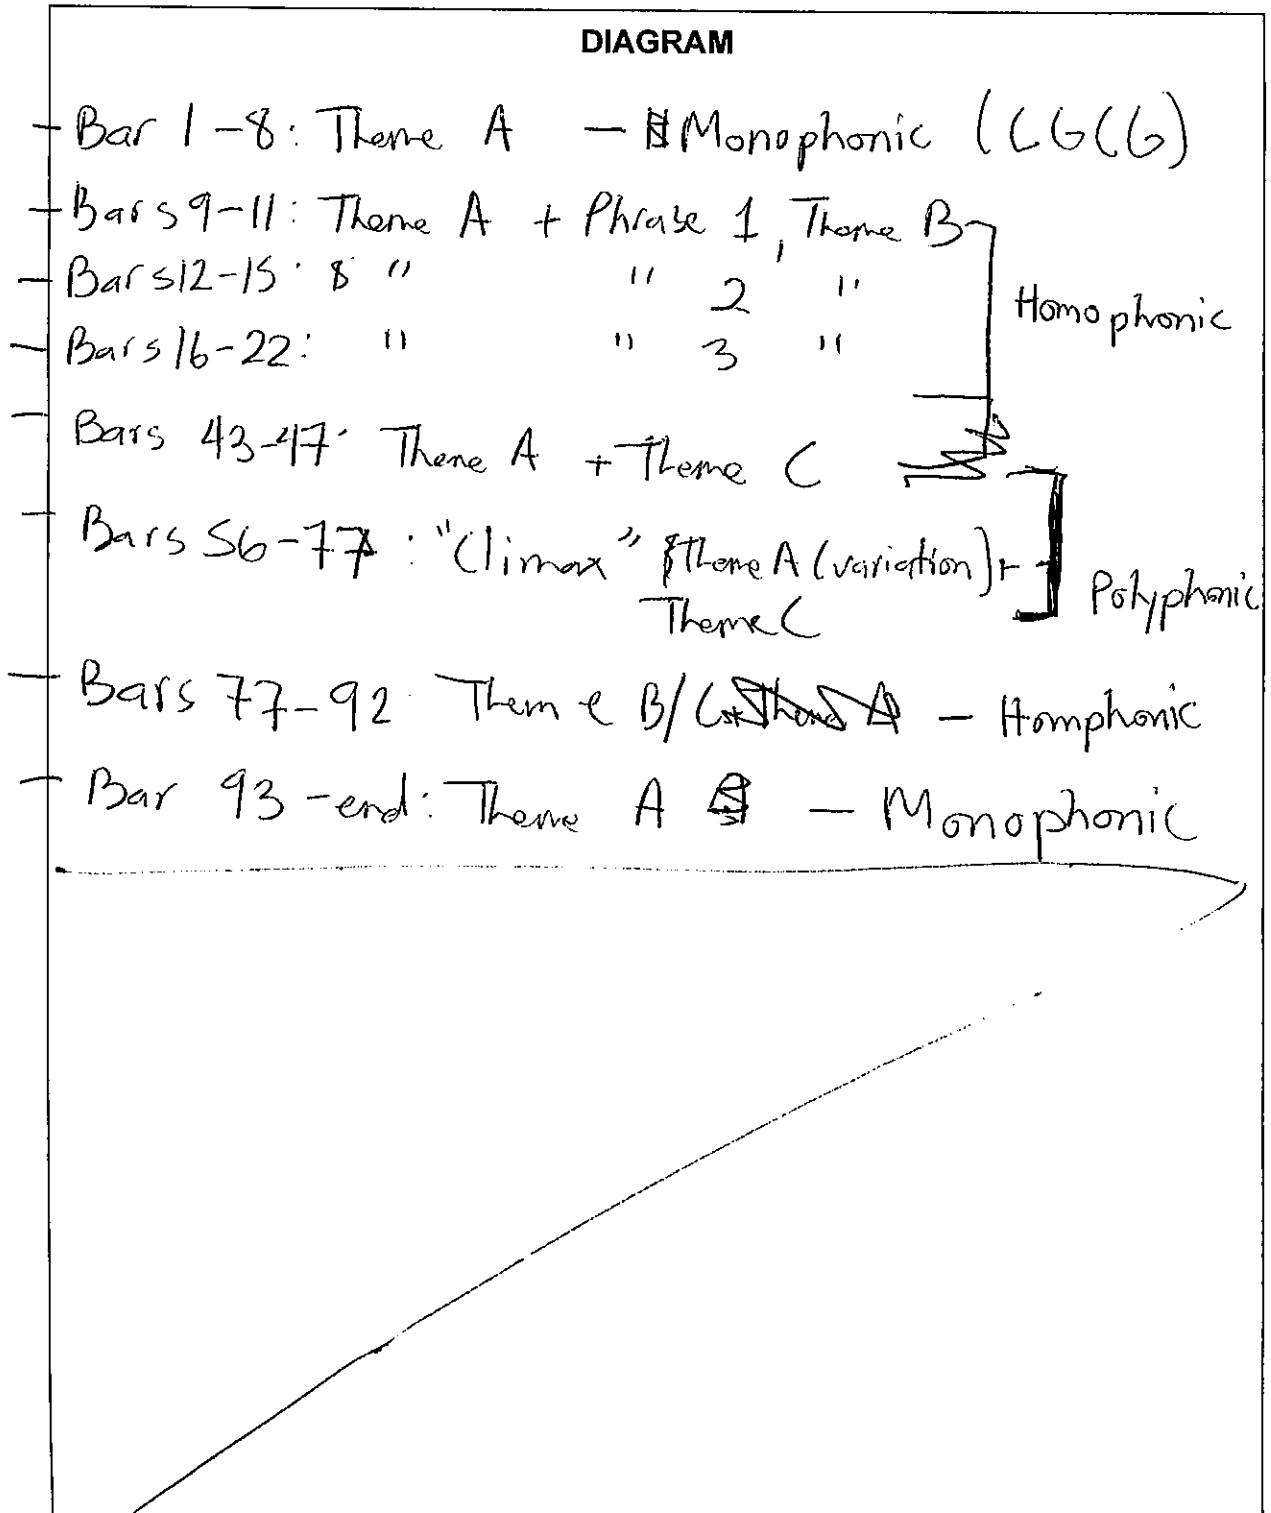 DIAGRAM
- Bar 1-8: Theme A - Monophonic (CGCG)
- Bars 9-11: Theme A + Phrase 1, Theme B
- Bars 12-15: " " 2 "
- Bars 16-22: " " 3 "
Homophonic
- Bars 43-47: Theme A + Theme C
- Bars 56-77: "Climax" Theme A (variation) +
Theme C
Polyphonic
- Bars 77-92: Theme B/C - Homphonic
- Bar 93-end: Theme A - Monophonic